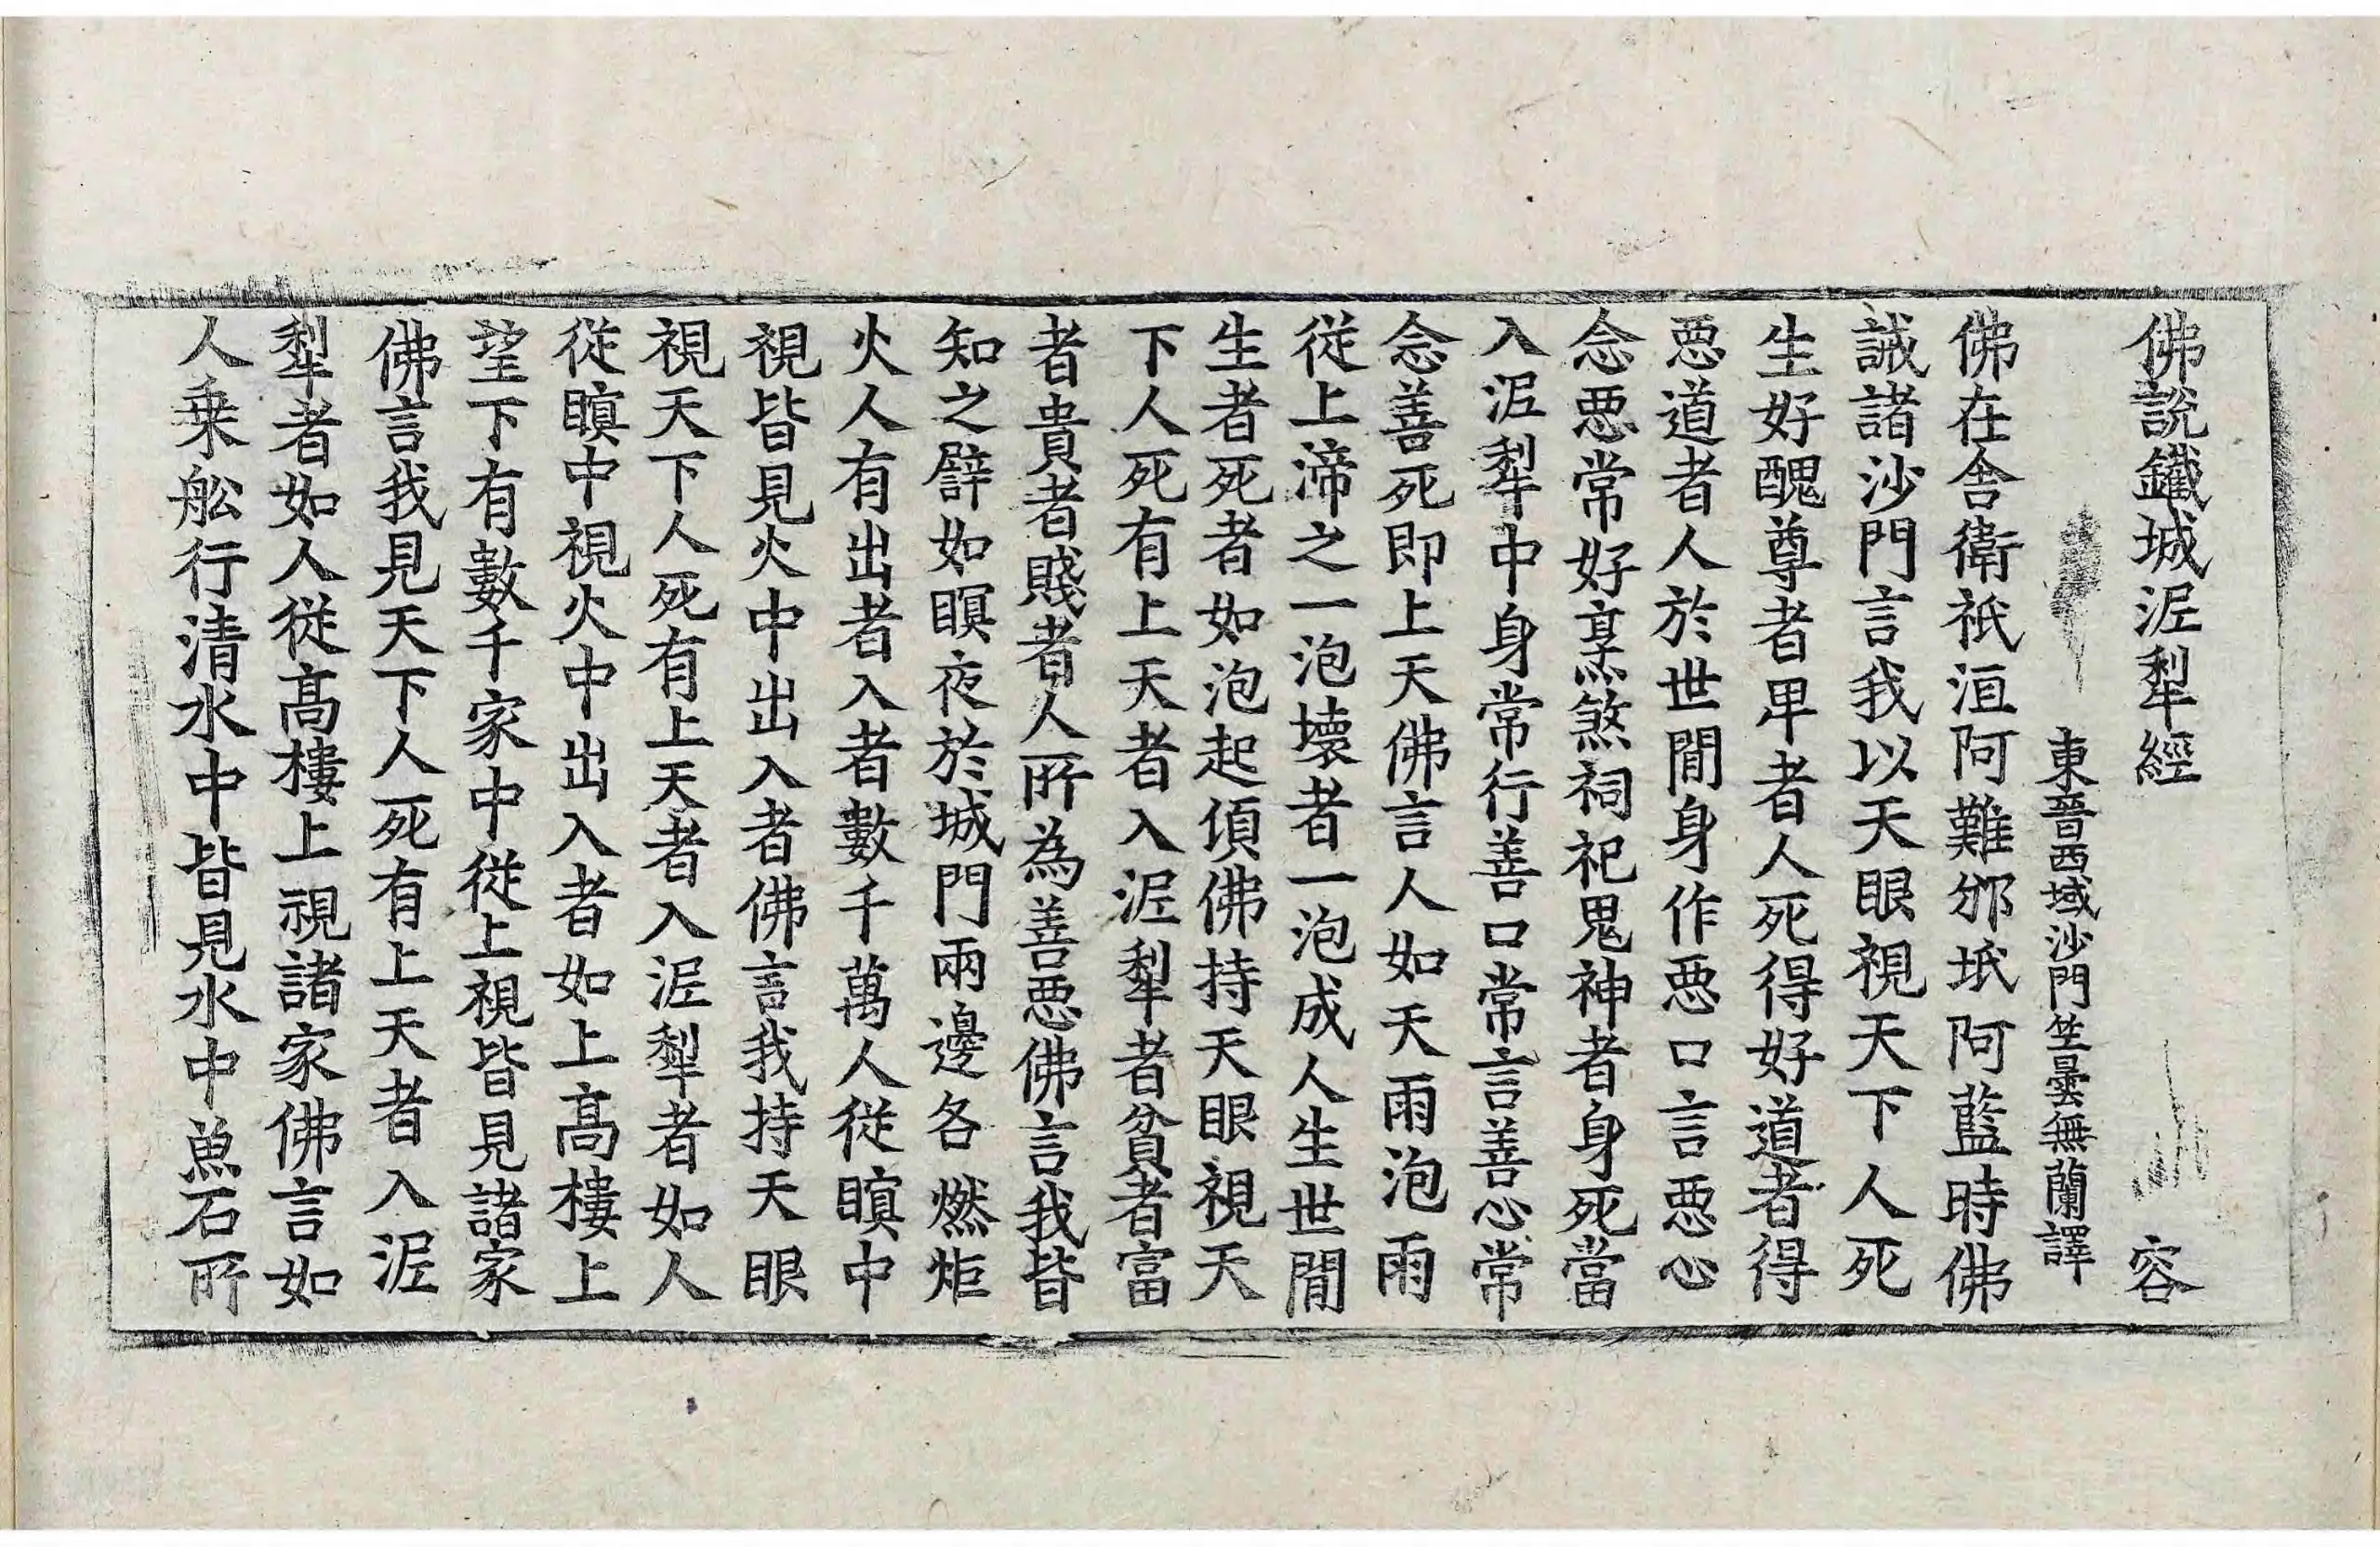 佛說鐵城泥犁經 容
東晉西域沙門竺曇無蘭譯
佛在舍衛祇洹阿難邠坻阿藍時佛
誡諸沙門言我以天眼視天下人死
生好醜尊者卑者人死得好道者得
惡道者人於世間身作惡口言惡心
念惡常好烹煞祠祀鬼神者身死當
入泥犁中身常行善口常言善心常
念善死即上天佛言人如天雨泡雨
從上渧之一泡壞者一泡成人生世間
生者死者如泡起傾佛持天眼視天
下人死有上天者入泥犁者貧者富
者貴者賤者人所為善惡佛言我皆
知之譬如瞑夜於城門兩邊各燃炬
火人有出者入者數千萬人從瞑中
視皆見火中出入者佛言我持天眼
視天下人死有上天者入泥犁者如人
從瞑中視火中出入者如上高樓上
望下有數千家中從上視皆見諸家
佛言我見天下人死有上天者入泥
犁者如人從高樓上視諸家佛言如
人乘舩行清水中皆見水中魚石所